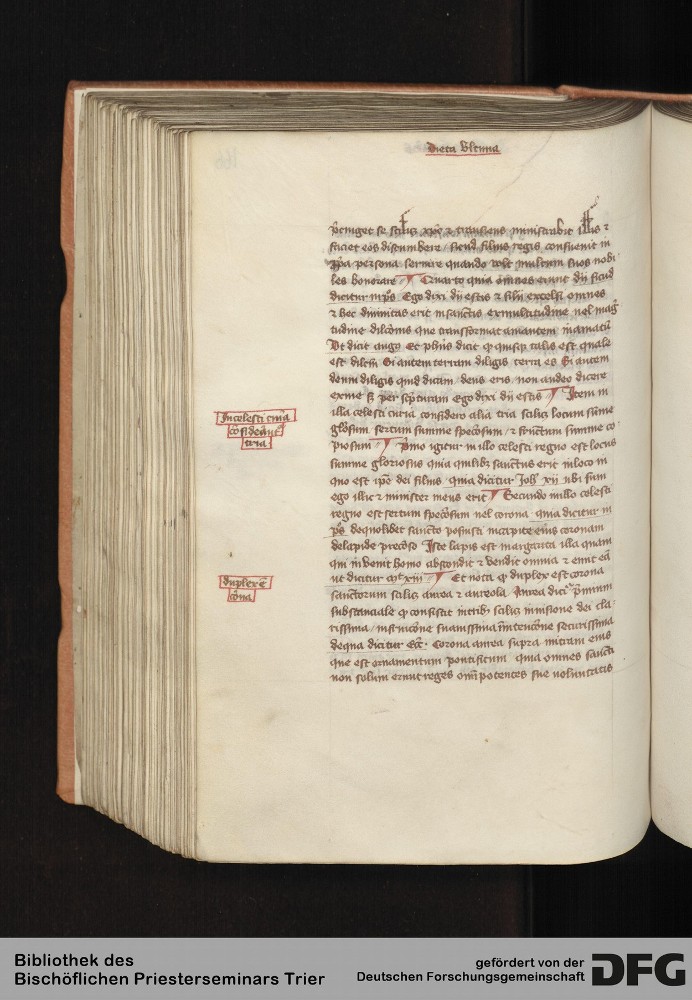 Dieta Vltima
p̄cinget se scil̄z xp̄c ⁊ transiens ministrabit illis ⁊
faciet eos discumbere / sicud filius regis consueuit in
p̄pa persona seruire quando volt multum suos nobi
les honorare ¶ Quarto quia omnes erunt dij sicud
dicitur in p̄s Ego dixi dij estis ⁊ filij excelsi omnes
⁊ hec diuinitas erit in sanctis ex multitudine uel mag̃
tudine dilc̄onis que transformat amantem in amatū
Vt dicit aug9 Et ph̄us dicit ꝙ quisq3 talis est quale
est dilc̄m Si autem terram diligis terra es Si autem
deum diligis quid dicam / deus eris non audeo dicere
ex me sꝫ per sc̄pturam Ego dixi dij estis ¶ Item in
illa celesti curia considero alia tria scil̄z locum sūme
gl̄osum sertum summe spec̄osum / ⁊ fructum summe co
piosum ¶ P̄mo igitur in illo celesti regno est locus
summe gloriosus quia quilibꝫ sanctus erit in loco in
quo est ip̄e dei filius quia dicitur Joh̄ xij ubi sum
ego illic ⁊ minister meus erit ¶ Secundo in illo celesti
regno est sertum spec̄osum uel corona quia dicitur in
p̄s de quolibet sancto posuisti in capite eius coronam
de lapide prec̄oso Iste lapis est margarita illa quam
qui inuenit homo abscondit ⁊ vendit omnia ⁊ emit eā
ut dicitur mt̄ xiij ¶ Et nota ꝙ duplex est corona
sanctorum scil̄z aurea ⁊ aureola Aurea dicit̄ p̄mium
substanciale ꝙ consistit in trib9 scil̄z in uisione dei cla
rissima / in fruic̄one suauissima / in tenc̄one securissima
de qua dicitur Ecc̄ Corona aurea supra mitram eius
que est ornamentum pontificum quia omnes sancti
non solum erunt reges om̄ipotentes sue voluntatis
In celesti curia
cōsiderāt̄
tria
duplex ē
corōa
Bibliothek des
Bischöflichen Priesterseminars Trier
gefördert von der
Deutschen Forschungsgemeinschaft
DFG